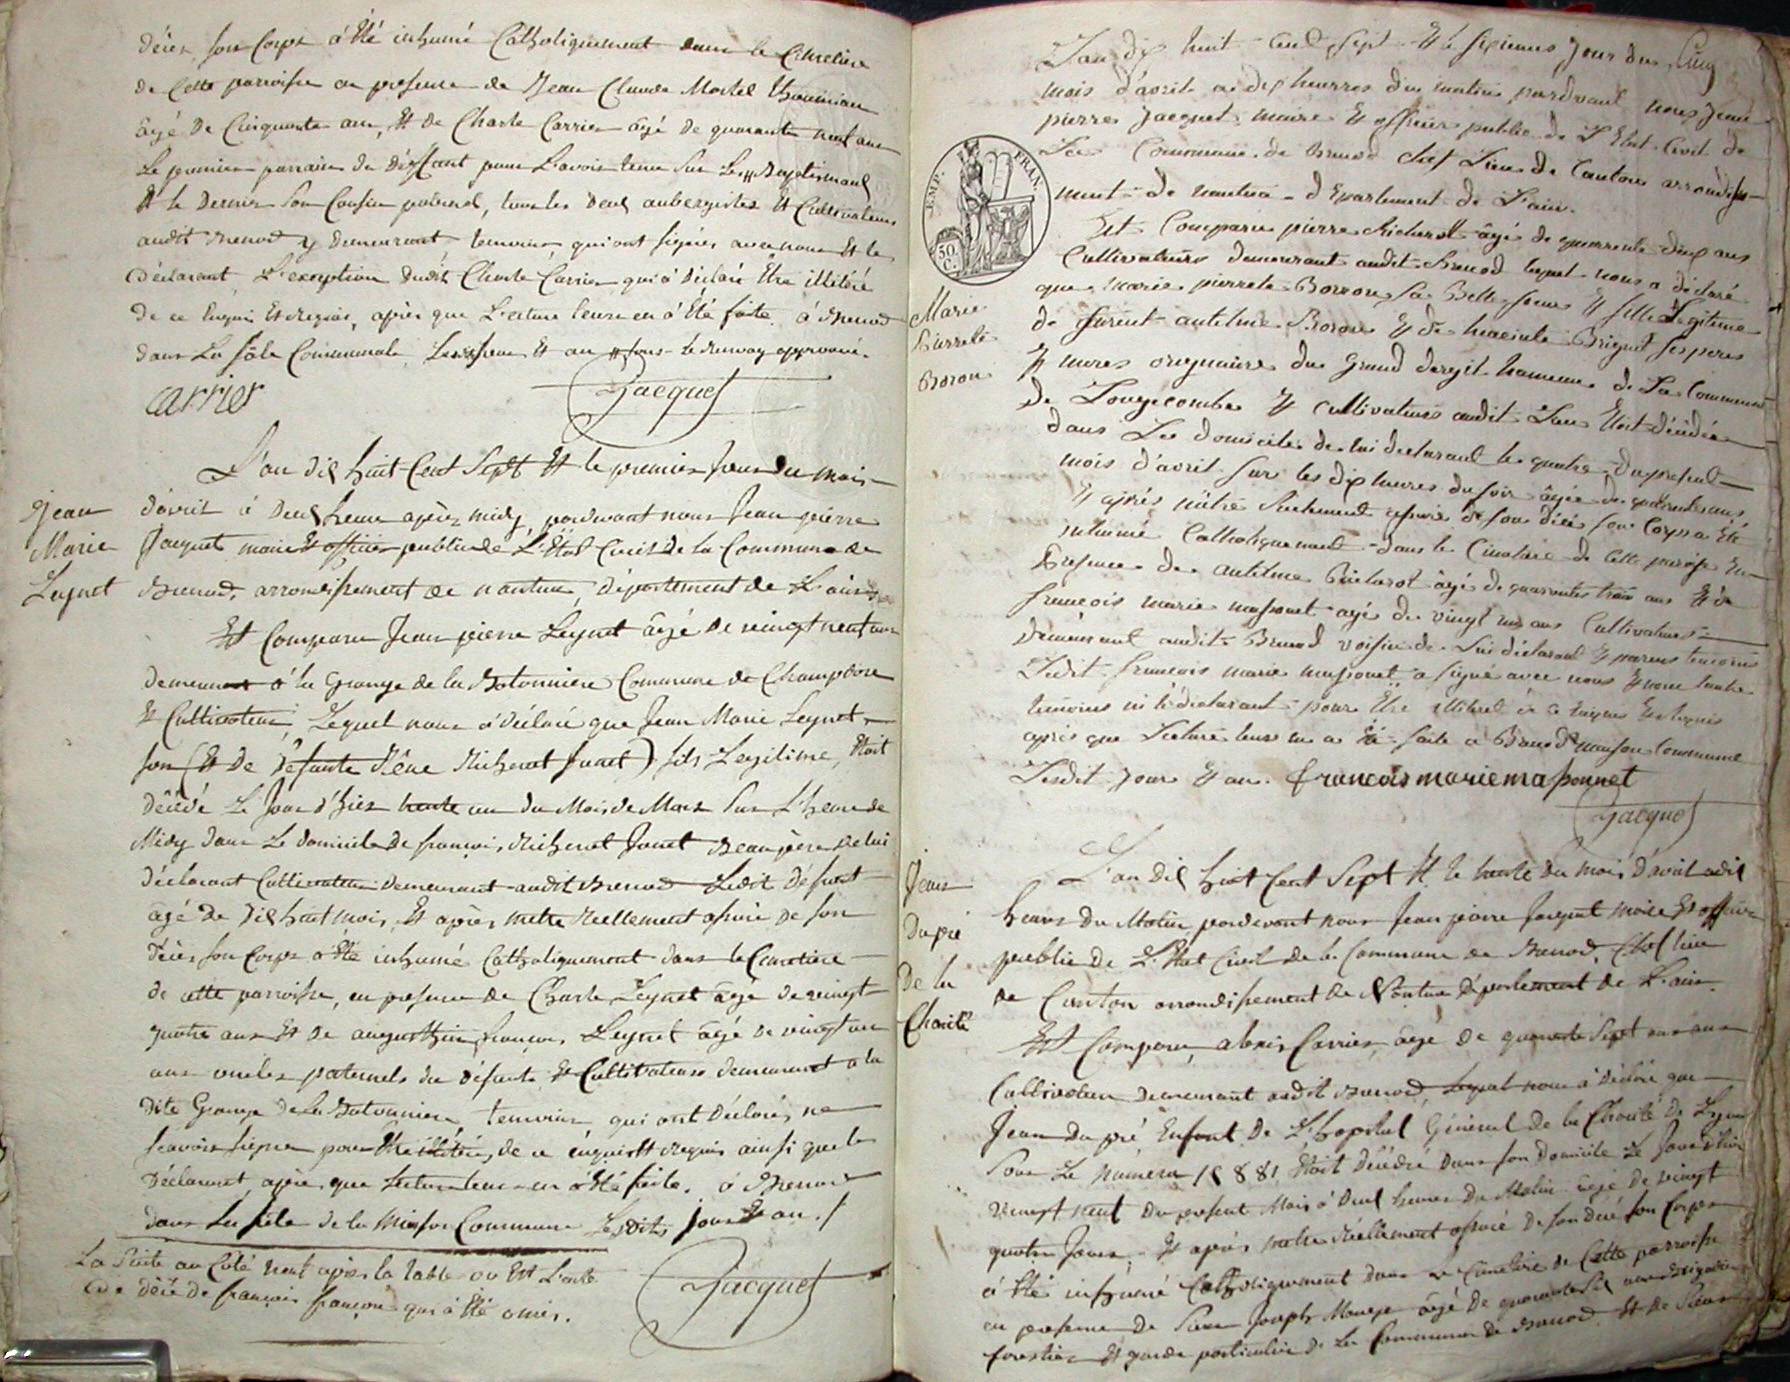 déces son Corps á Eté inhumé Catholiquement dans le Cimetiere
de Cette parroisse en presence de Jean Claude Martel
âgé de Cinquante ans, Et de Charle Carrier âgé de quarante neuf ans
Le premier parrain du Deffunt pour L'avoir tenu Sur Les
Et le Dernier Son Cousin paternel, tous les deux aubergistes Et Cultivateurs
audit Brenod y demeurant temoins qui ont signés avec nous Et le
déclarant L'exception dudit Charle Carrier qui á déclaré Etre illitéré
de ce Enquis Et requis, après que L'ecture leurs en á Eté faite á Brenod
dans La Sâle Communale, Les jour Et an
carrier
Jacquet
Jean
Marie
Leynet
L'an dix huit Cent Sept Et le premier jour du mois
d'avril á deux heure après midy pardevant nous Jean pierre
Jacquet maire Et officier public de L'Etat Civil de la Commune de
Brenod, arrondissement de nantua, Département de L'ain
Est Comparu Jean pierre Leynet âgé de vingt neuf ans
demeurant á la Grange de la Batonniere Commune de Champdore
Et Cultivateur, Lequel nous á Déclaré que Jean Marie Leynet
son (Et de Défunte Réne Richerot Junet) fils Legitime, Etoit
décédé Le Jour d'hier trente un du Mois de Mars Sur L'heure de
Midy dans Le domicile de françois Richerot Junet Beaupère de lui
déclarant Cultivateur demeurant audit Brenod Ledit défunt
âgé de Dix huit mois, Et après m'etre réellement assuré de son
déces son Corps á Eté inhumé Catholiquement dans le Cimetiere
de cette parroisse, en presence de Charle Leynet âgé de vingt
quatre ans Et de augusthin françois Leynet âgé de vingt un
ans oncles paternels du défunt Et Cultivateurs demeurant a la
dite Grange de la Batonniere, temoins qui ont déclarés ne
scavoir signer pour Etre illitéré, de ce enquis Et requis ainsi que le
déclarant après que Lecture leur en á Eté faite. á Brenod
dans La Sâle de la Maison Commune Lesdits Jour Et an./
La Suite au Coté neuf après la table ou Est L'acte
de décé de françois françon qui á Eté omis.
Jacquet
Cinq
L'an dix huit cent sept Et le sixieme Jour du
mois d'avril à dix heurres du matin pardvant nous Jean
pierre Jacquet, maire Et officier public de L'Etat Civil de
La Commune de Brenod chef Lieu de Canton arrondisse
ment de nantua département de L'ain.
EMP. FRAN.
50 C.
Marie
Pierrete
Boron
Est Comparu pierre Richerot âgé de quarrente deux ans
Cultivateurs demeurant audit Brenod lequel nous a déclaré
que Marie pierrete Borron, sa Belle soeur Et fille Legitime
de furent antelme Boron Et de hiacinte Brignet ses peres
Et meres originaire du Grand dergit hameau de La Commune
de Longecombe Et cultivateurs audit Lieu Etoit décédée
dans Le domicile de lui declarant le quatre du présent
mois d'avril sur les dix heures du soir âgée de quarente ans
Et après m'être Reelement assuré de son décé son Corps a Eté
inhumé Catholiquement dans le Cimetiere de cette paroisse En
Presence de antelme Richerot âgé de quarente trois ans Et de
françois marie massonet âgé de vingt un ans Cultivateurs
demeurant audit Brenod voisin de lui déclarant Et parens temoins
Ledit françois marie massonet a signé avec nous Et non lautre
temoins ni le déclarant pour Etre illitéré de ce Enquis Et Requis
après que Lecture leur en a Eté faite a Brenod maison Commune
Lesdit Jour Et an. francois marie massonnet
Jacquet
Jean
Dupré
De la
Charité
L'an dix huit Cent Sept Et le trente du mois d'avril a dix
heure du Matin pardevant nous Jean pierre Jacquet maire Et officier
public de L'Etat Civil de la Commune de Brenod, Chef lieu
de Canton arrondissement de Nantua département de L'ain.
Est Comparu, alexis Carrier, âgé de quarante Sept ans
Cultivateur demeurant audit Brenod, Lequel nous á déclaré que
Jean Dupré Enfant De L'hopital Général de la Charité de Lyon
Sous Le numero 15881, Etoit décédé dans son domicile Le Jour d'hier
vingt neuf du present Mois á deux heures du Matin âgé de vingt
quatre Jours. Et après m'etre réellement assuré de son décé son Corps
á Eté inhumé Catholiquement dans le Cimetiere de Cette parroisse
en presence de Sieur Joseph Monege âgé de quarante Six ans Brigadier
forestier Et garde particulier de La Commune de Brenod. Et de Sieur